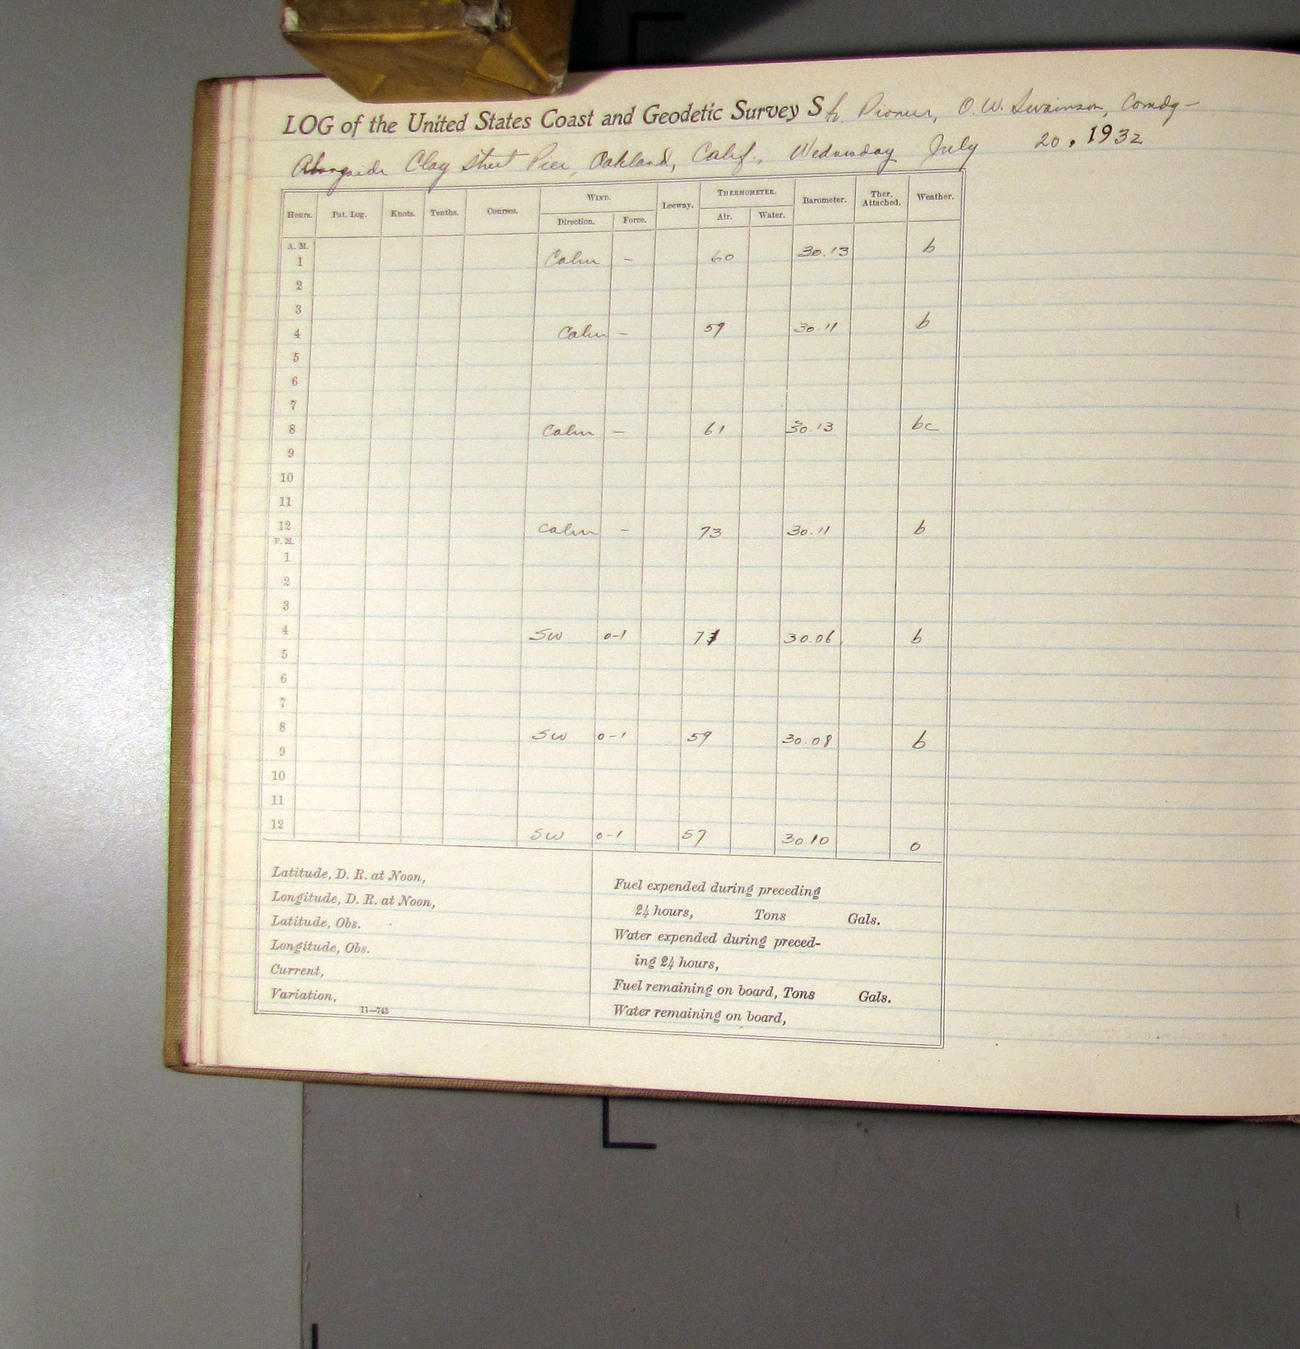 LOG of the United States Coast and Geodetic Survey Sh. Pioneer, O.W. Swainson, Comdg—
Alongside Clay Street Pier, Oakland, Calif., Wednesday July 20, 1932
Hours. Pat. Log. Knots. Tenths. Courses. Wind. Direction. Force. Leeway. Thermometer. Air. Water. Barometer. Ther. Attached. Weather.
A. M.
1 Calm – 60 30.13 b
2
3
4 Calm – 59 30.11 b
5
6
7
8 Calm – 61 30.13 bc
9
10
11
12 Calm – 73 30.11 b
P. M.
1
2
3
4 SW 0-1 71 30.06 b
5
6
7
8 SW 0-1 59 30.08 b
9
10
11
12 SW 0-1 57 30.10 o
Latitude, D. R. at Noon,
Longitude, D. R. at Noon,
Latitude, Obs.
Longitude, Obs.
Current,
Variation,
11—743
Fuel expended during preceding
24 hours, Tons Gals.
Water expended during preced-
ing 24 hours,
Fuel remaining on board, Tons Gals.
Water remaining on board,